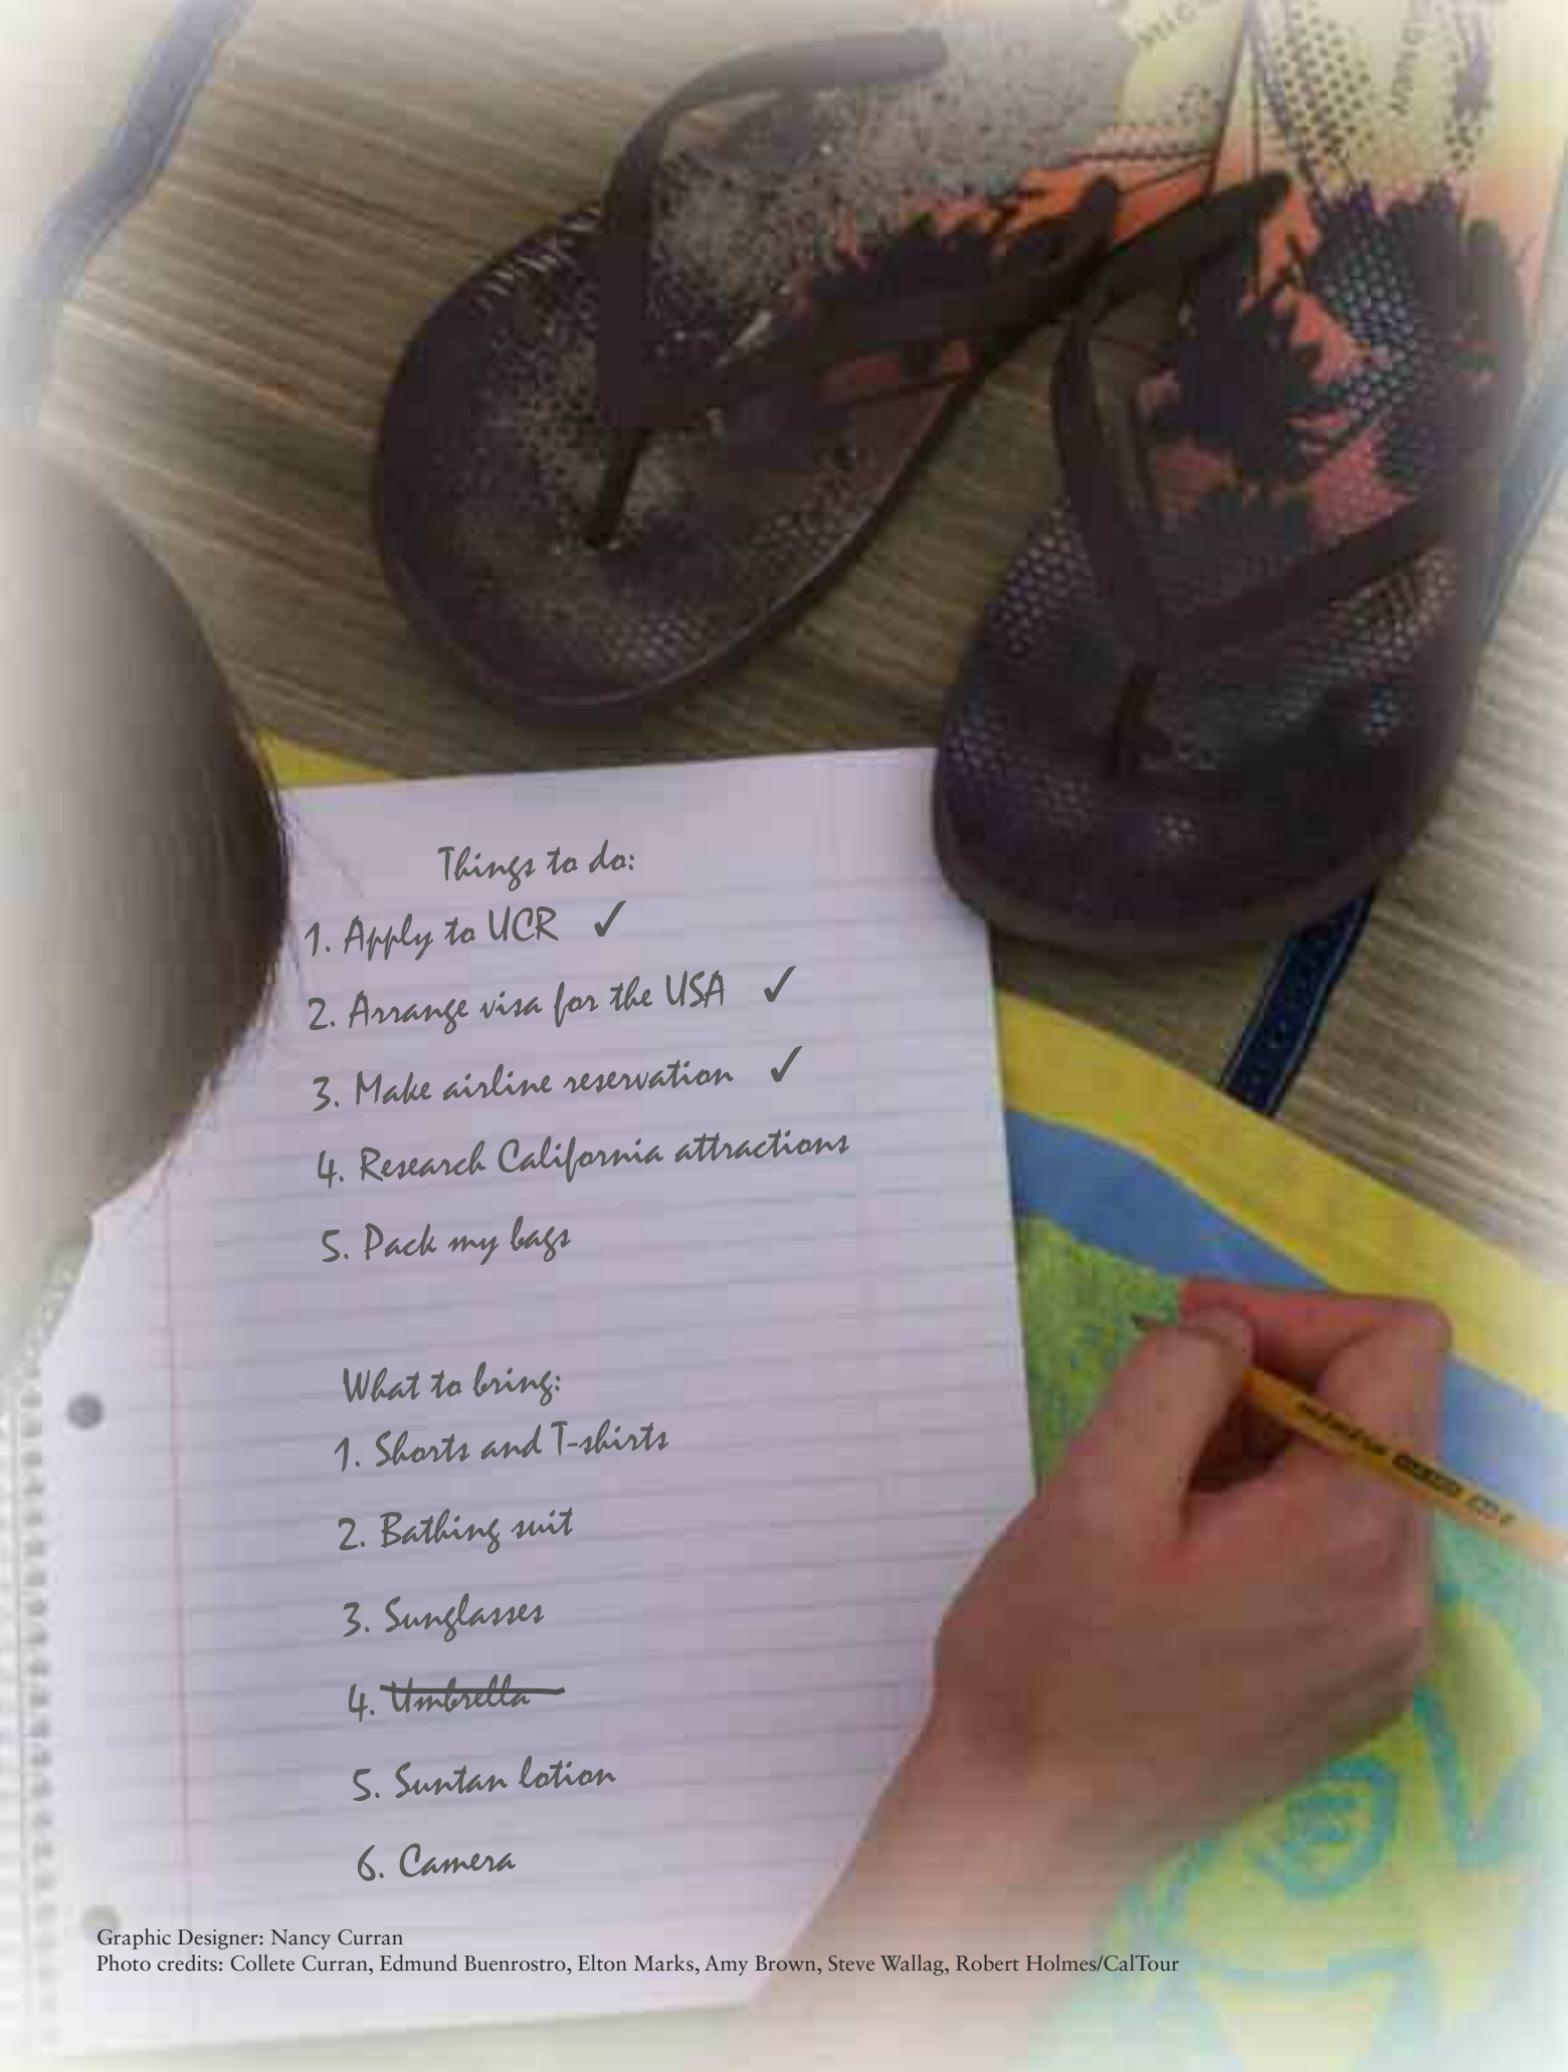 Things to do:
1. Apply to UCR ✓
2. Arrange visa for the USA ✓
3. Make airline reservation ✓
4. Research California attractions
5. Pack my bags
What to bring:
1. Shorts and T-shirts
2. Bathing suit
3. Sunglasses
4. Umbrella
5. Suntan lotion
6. Camera
Graphic Designer: Nancy Curran
Photo credits: Collete Curran, Edmund Buenrostro, Elton Marks, Amy Brown, Steve Wallag, Robert Holmes/CalTour